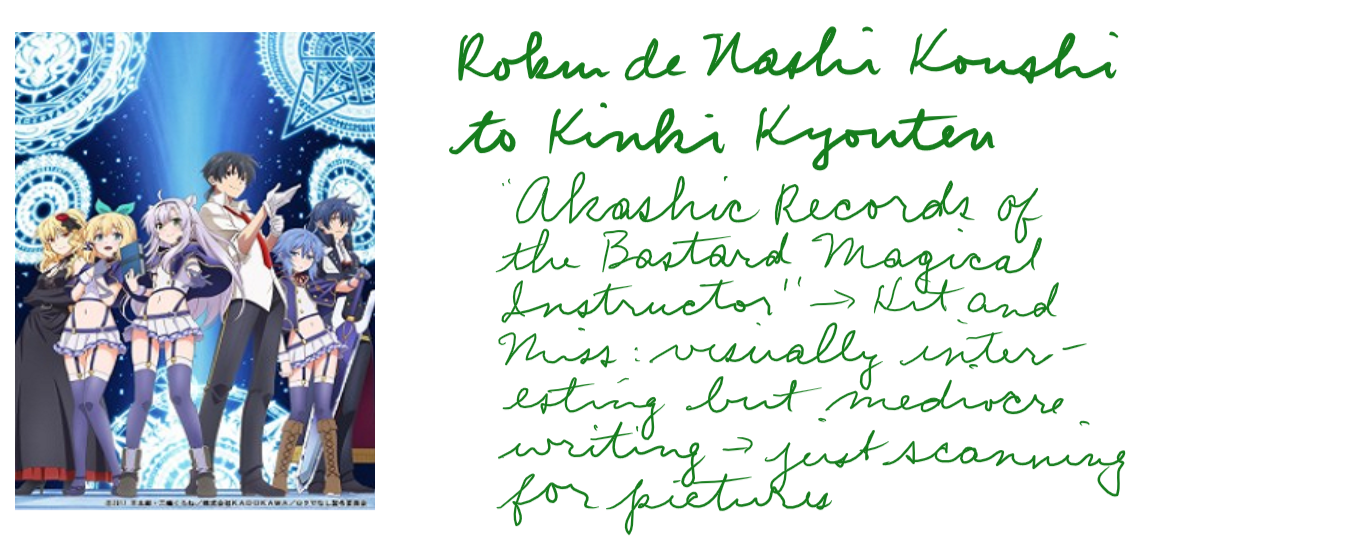 Rokun de Nashi Koushi
to Kinki Kyouten
"Akashic Records of
the Bastard Magical
Instructor" → Hit and
Miss: visually inter-
esting but mediocre
writing → just scanning
for pictures